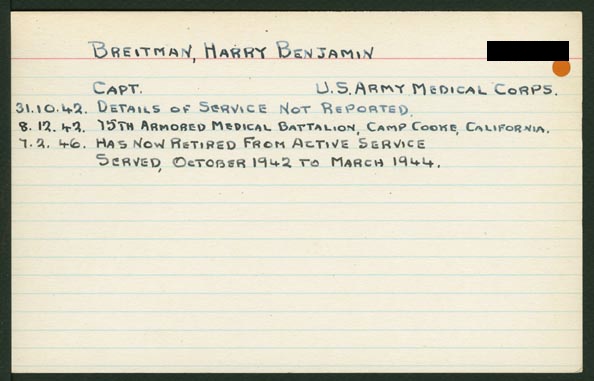 BREITMAN, HARRY BENJAMIN
CAPT. U.S. ARMY MEDICAL CORPS.
31.10.42. DETAILS OF SERVICE NOT REPORTED.
8.12.42. 15TH ARMORED MEDICAL BATTALION, CAMP COOKE, CALIFORNIA.
7.2.46. HAS NOW RETIRED FROM ACTIVE SERVICE
SERVED, OCTOBER 1942 TO MARCH 1944.